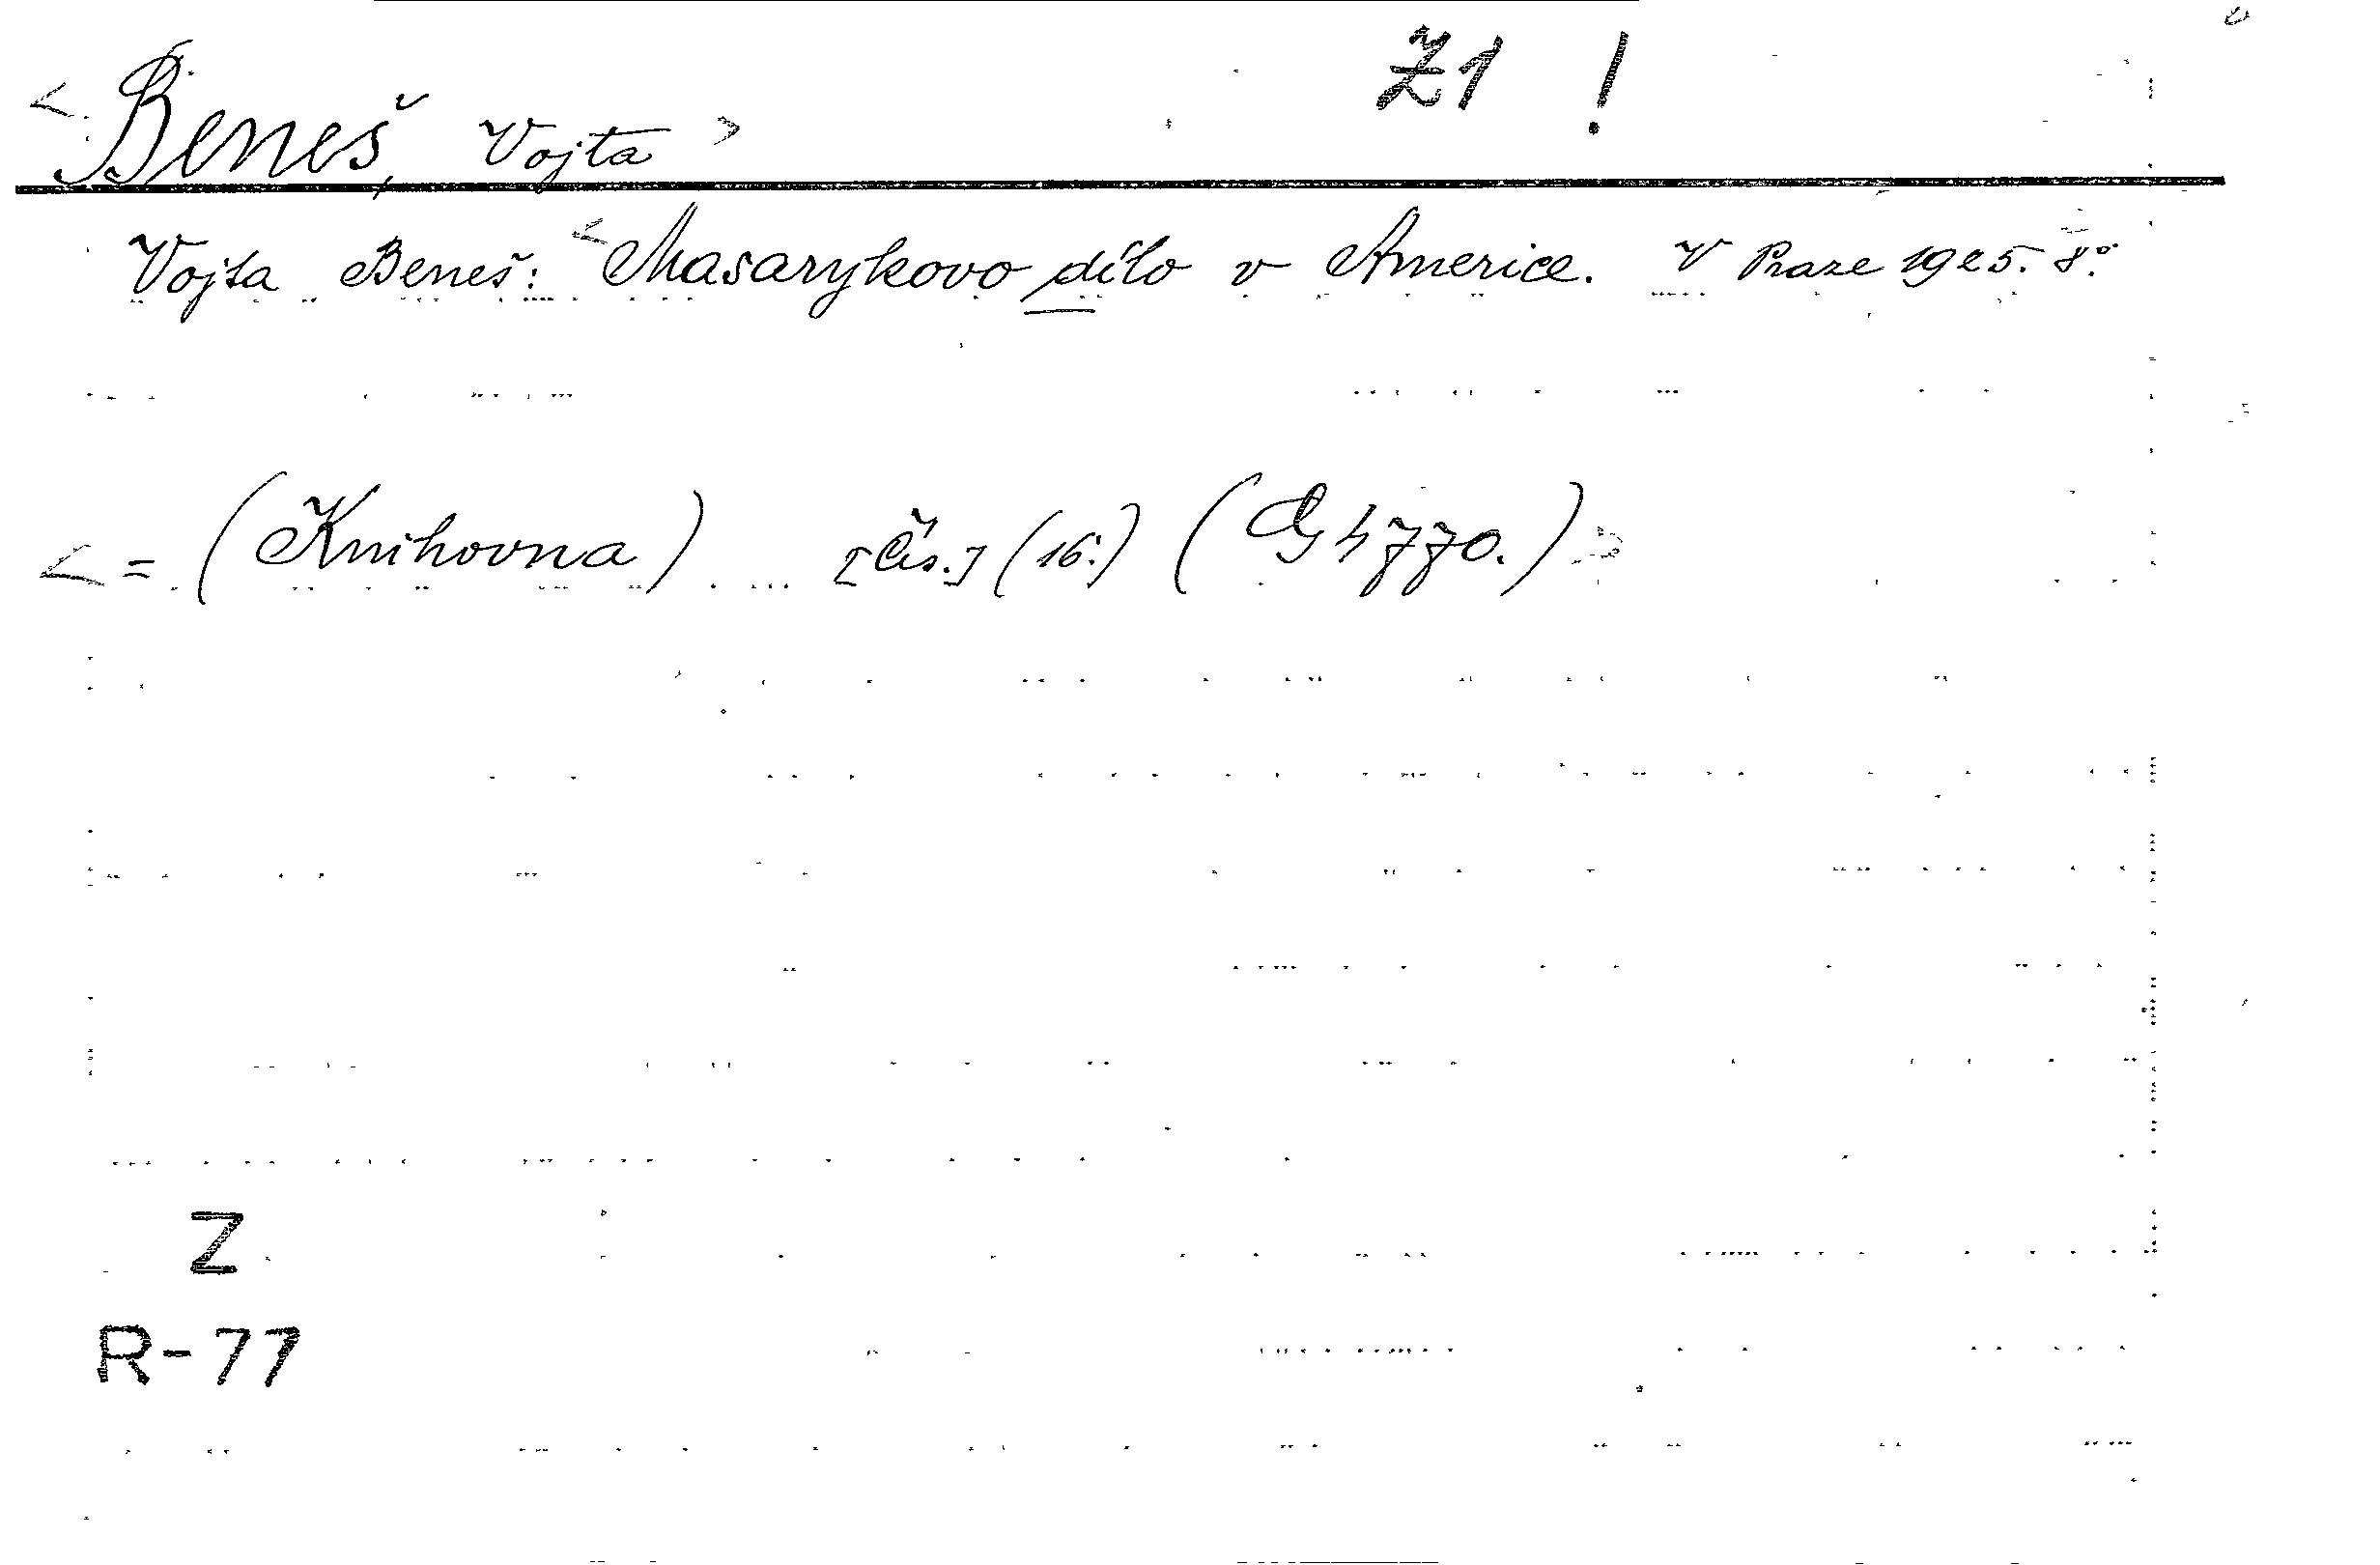 Z1 !
< Beneš, Vojta >
Vojta Beneš: < Masarykovo dílo v Americe. V Praze 1925. 8°.
< = (Knihovna) [čís.] (16.) (G 4770.) >
Z
R-77